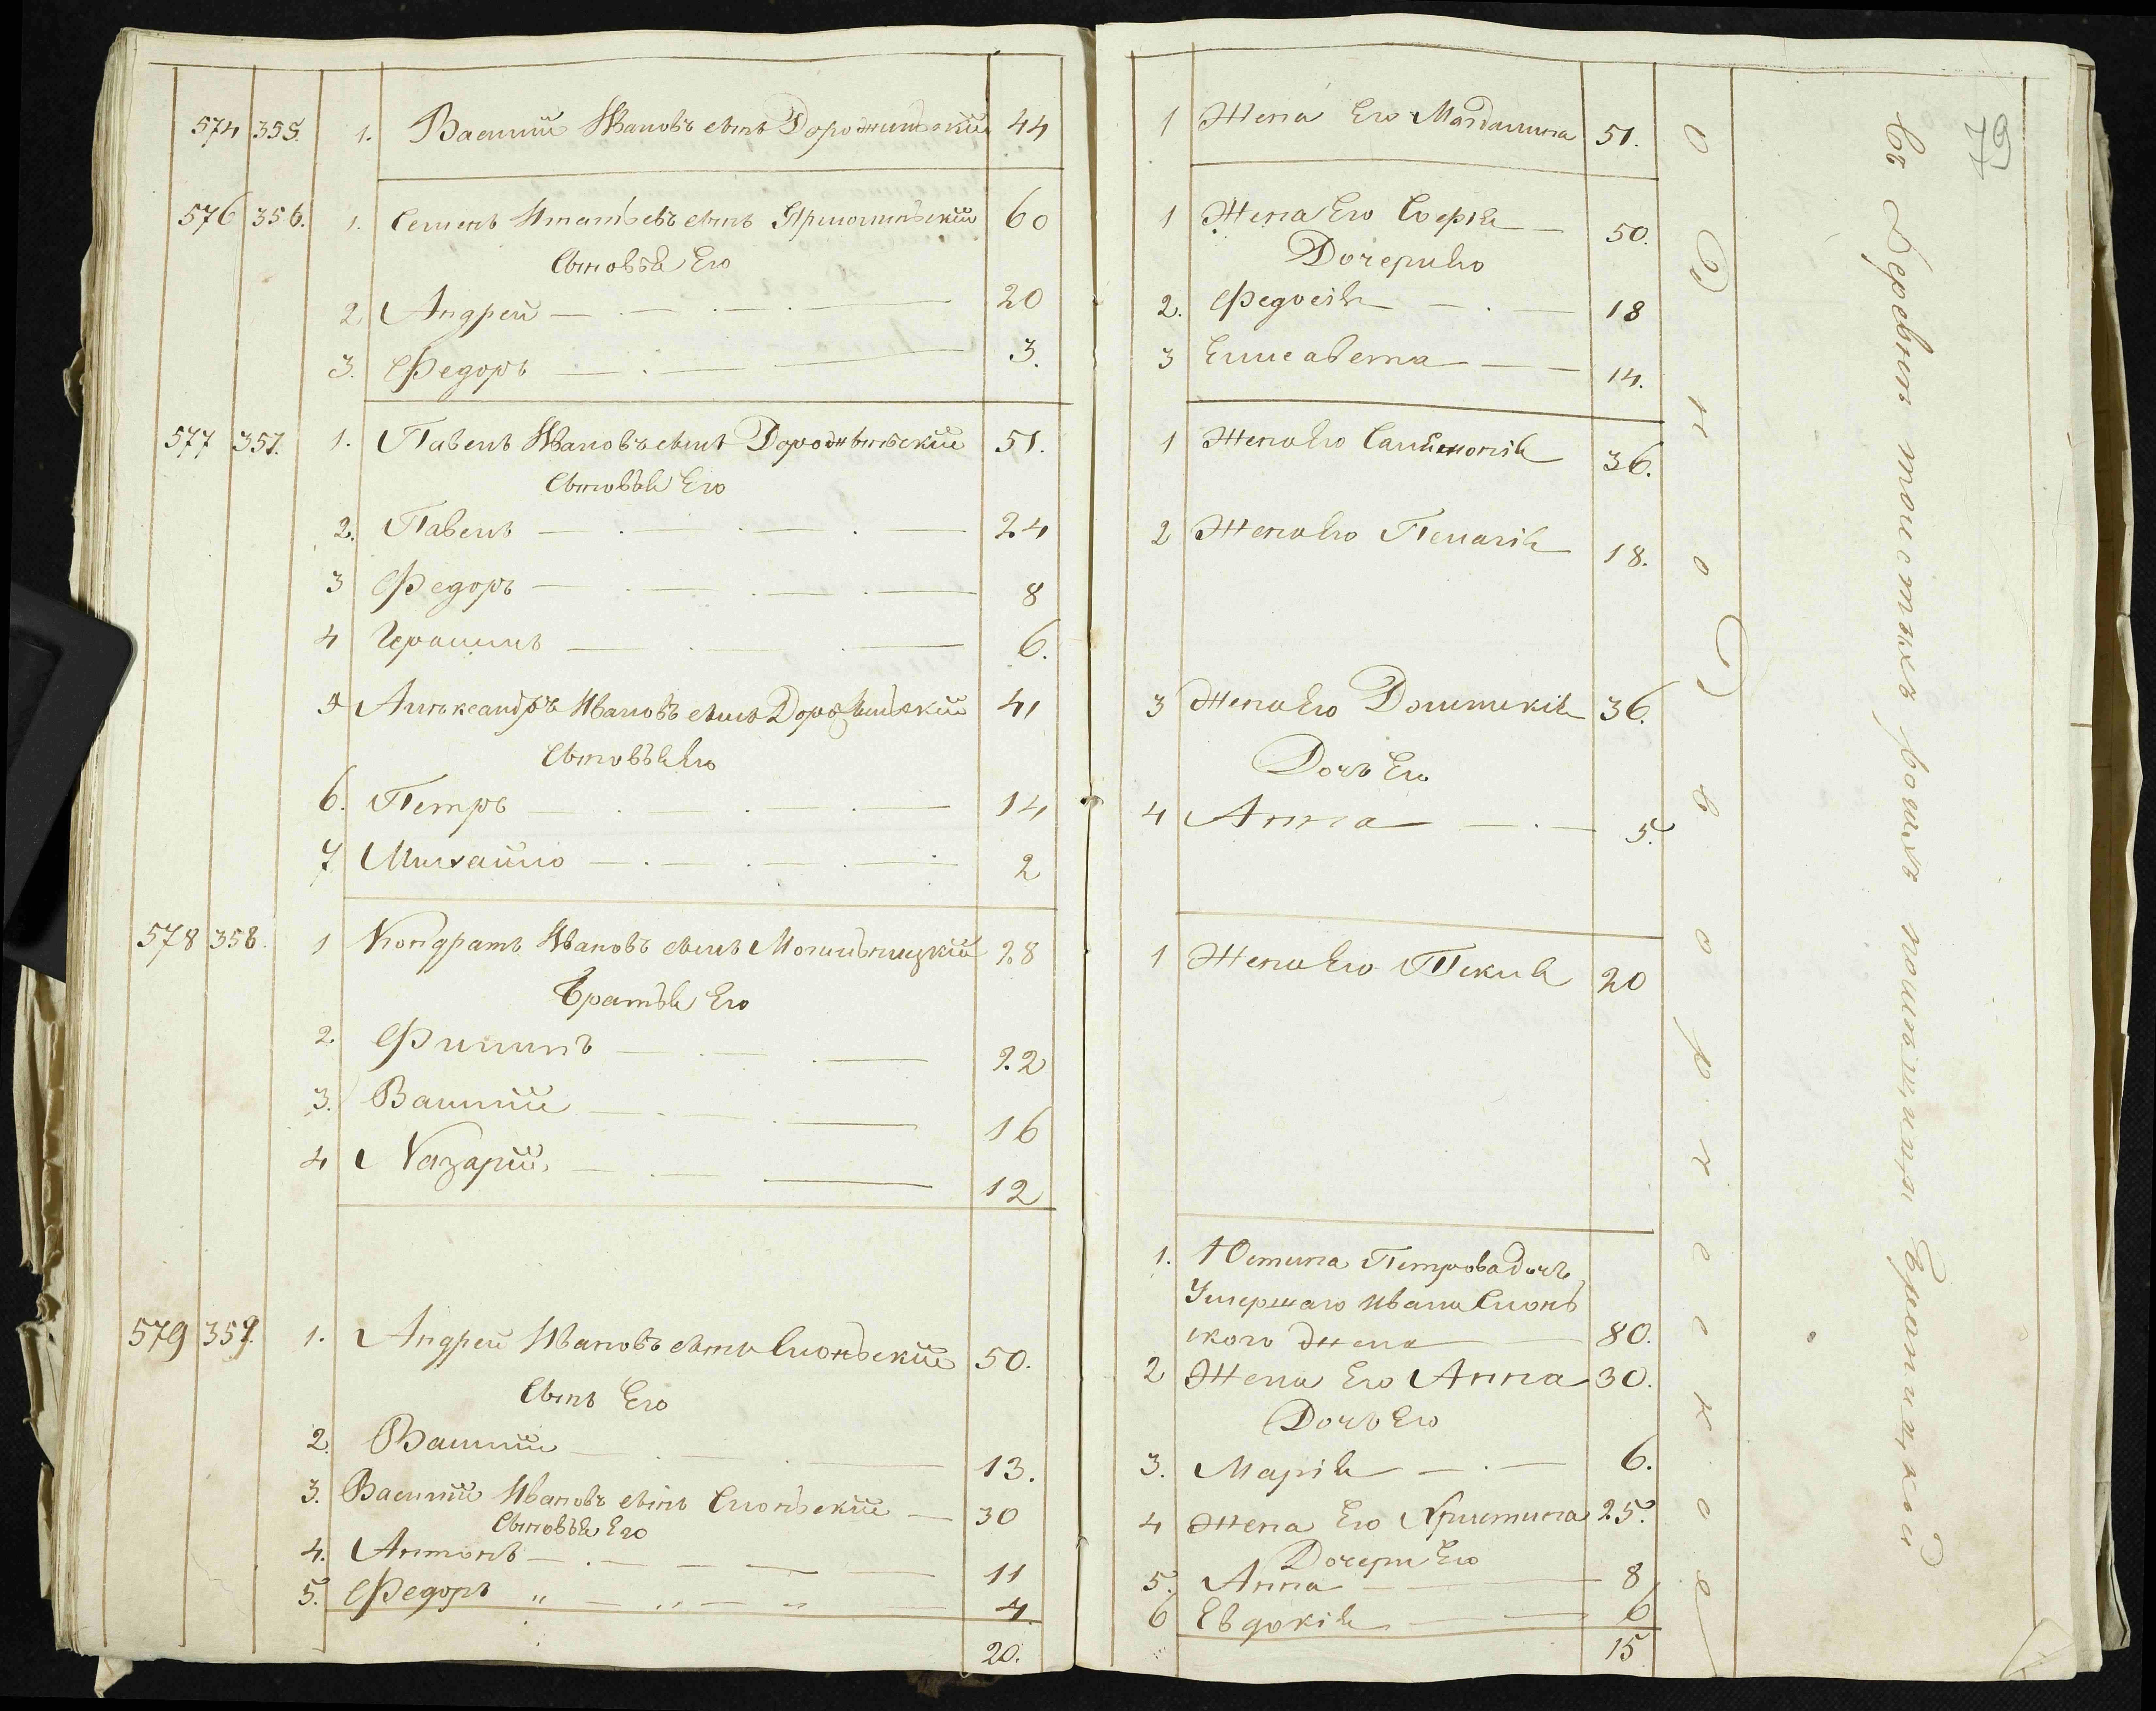 574 355. 1. Василий Ивановъ сынъ Дорожинский 44
576 356. 1. Семенъ Игнатьевъ сынъ 60
Сыновья Его
2 Андрей 20
3. Федоръ 3.
577 357. 1. Павелъ Ивановъ сынъ Дорожинский 51.
Сыновья Его
2. Павелъ 24
3 Федоръ 8
4 6.
5 Александръ Ивановъ сынъ Дорожинский 41
Сыновья Его
6. Петръ 14
7 Михайло 2
578 358. 1 Кондратъ Ивановъ сынъ Могильницкий 28
Братья Его
2. Филипъ 22
3. Василий 16
4 Назарий 12
579 359. 1. Андрей Ивановъ сынъ Слонъский 50.
Сынъ Его
2. Василий 13.
3. Василий Ивановъ сынъ Слонъский 30
Сыновья Его
4. Антонъ 11
5. Федоръ 4.
20.
79
1 Жена Его Магдалина 51.
1 Жена Его Софія 50.
Дочери Его
2. Федосія 18
3 Елисавета 14.
1 Жена Его 36.
2 Жена Его Пелагія 18.
3 Жена Его Домникія 36.
Дочь Его
4 Анна 5.
1 Жена Его Текля 20
1. Юстина Петрова дочь
Умершаго Ивана Слонь
ского жена 80.
2 Жена Его Анна 30.
Дочь Его
3. Марія 6.
4 Жена Его Христина 25.
Дочери Его
5. Анна 8
6 Евдокія 6
15
въ Деревни